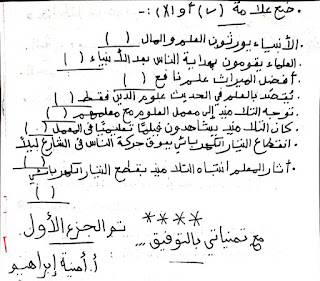 ضع علامة (√) أو (X) :-
. الأنبياء يورثون العلم والمال ( )
. العلماء يقومون بهداية الناس بعد الأنبياء ( )
. أفضل الميراث علم نافع ( )
. يُقصد بالعلم في الحديث علوم الدين فقط ( )
. توجه التلاميذ إلى معمل العلوم مع معلمهم ( )
. كان التلاميذ يشاهدون فيلمًا تعليميًا في المعمل ( )
. انقطاع التيار الكهربائي يعوق حركة الناس في الشارع ليلاً ( )
. أثار المعلم انتباه التلاميذ بقطع التيار الكهربائي ( )
****
تم الجزء الأول
مع تمنياتي بالتوفيق ...
أ. أمنية إبراهيم